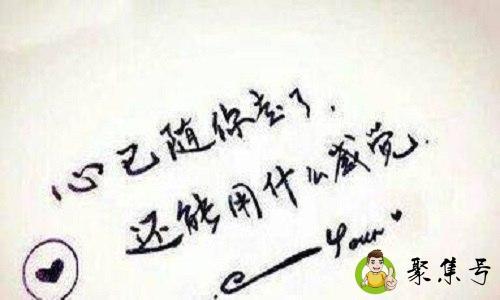 心已随你去了.
还能用什么感觉.
Your
聚集号